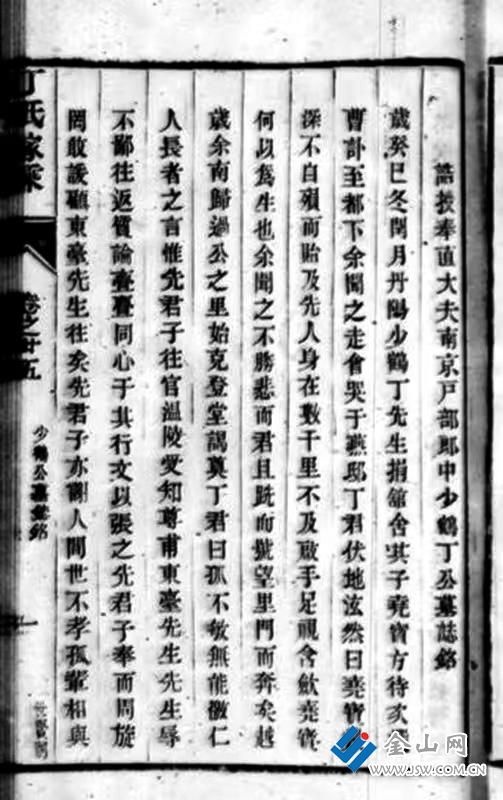 誥授奉直大夫南京戸部郎中少鶴丁公墓誌銘
歲癸巳冬閏月丹陽少鶴丁先生捐舘舍其子堯寳方待次
曹訃至都下余聞之走會哭于燕邸丁君伏地泫然曰堯寳
深不自殞而貽及先人身在數千里不及啟手足視含歛堯寳
何以爲生也余聞之不勝悲而君且跣而號望里門而奔矣越
歲余南歸過公之里始克登堂謁奠丁君曰孤不敏無能徼仁
人長者之言惟先君子往官溫陵受知尊甫東臺先生先生辱
不鄙往返質論亹亹同心于其行文以張之先君子奉而周旋
罔敢諼顧東臺先生往矣先君子亦謝人間世不孝孤輩相與
丁氏家乘
卷之廿五
少鶴公墓誌銘
金山网
WWW.JSW.COM.CN